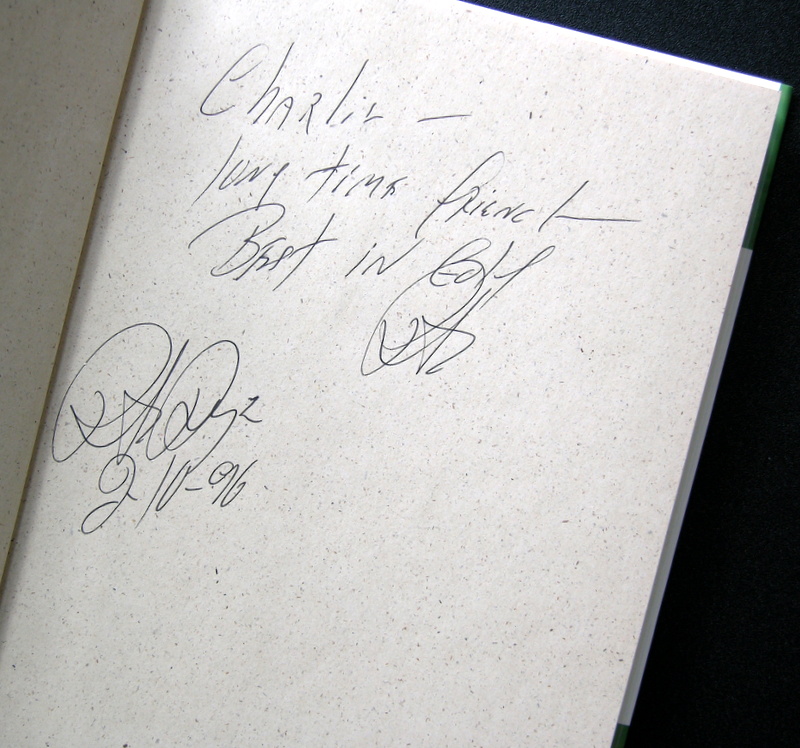 Charlie —
long time friend —
Best in Golf
2-10-96